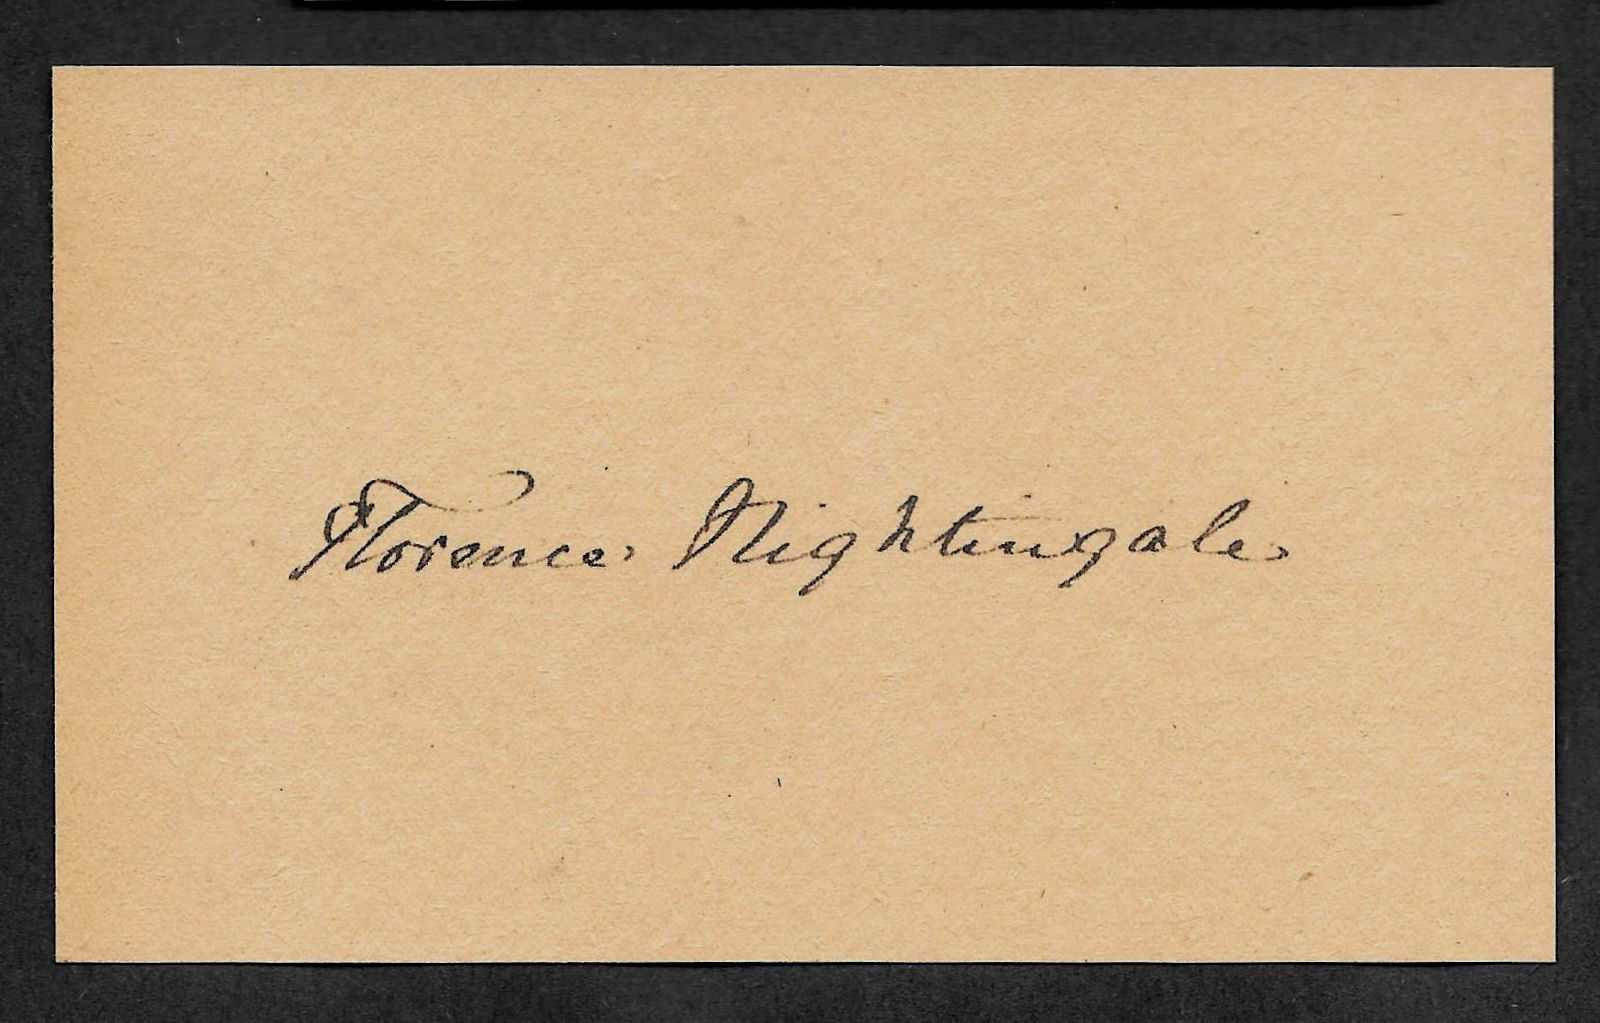 Florence Nightingale